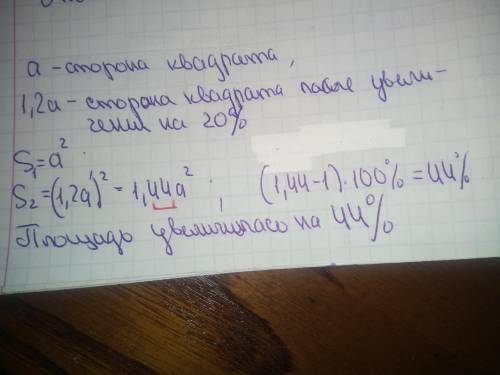 a - сторона квадрата,
1,2a - сторона квадрата после увели-
чения на 20%
S₁=a²
S₂=(1,2a)²=1,44a² ; (1,44-1)·100%=44%
Площадь увеличилась на 44%